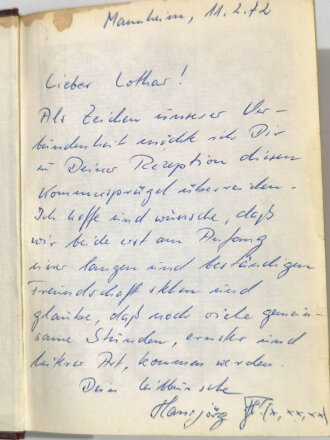 Mannheim, 11.2.72
Lieber Lothar!
Als Zeichen unserer Ver-
bundenheit möchte ich Dir
zu Deiner Rezeption diesen
Kommersprügel überreichen.
Ich hoffe und wünsche, daß
wir beide erst am Anfang
einer langen und beständigen
Freundschaft stehen und
glaube, daß noch viele gemein-
same Stunden, ernster und
heiterer Art, kommen werden.
Dein Leibbursche
Hansjörg (x, xx, xx)